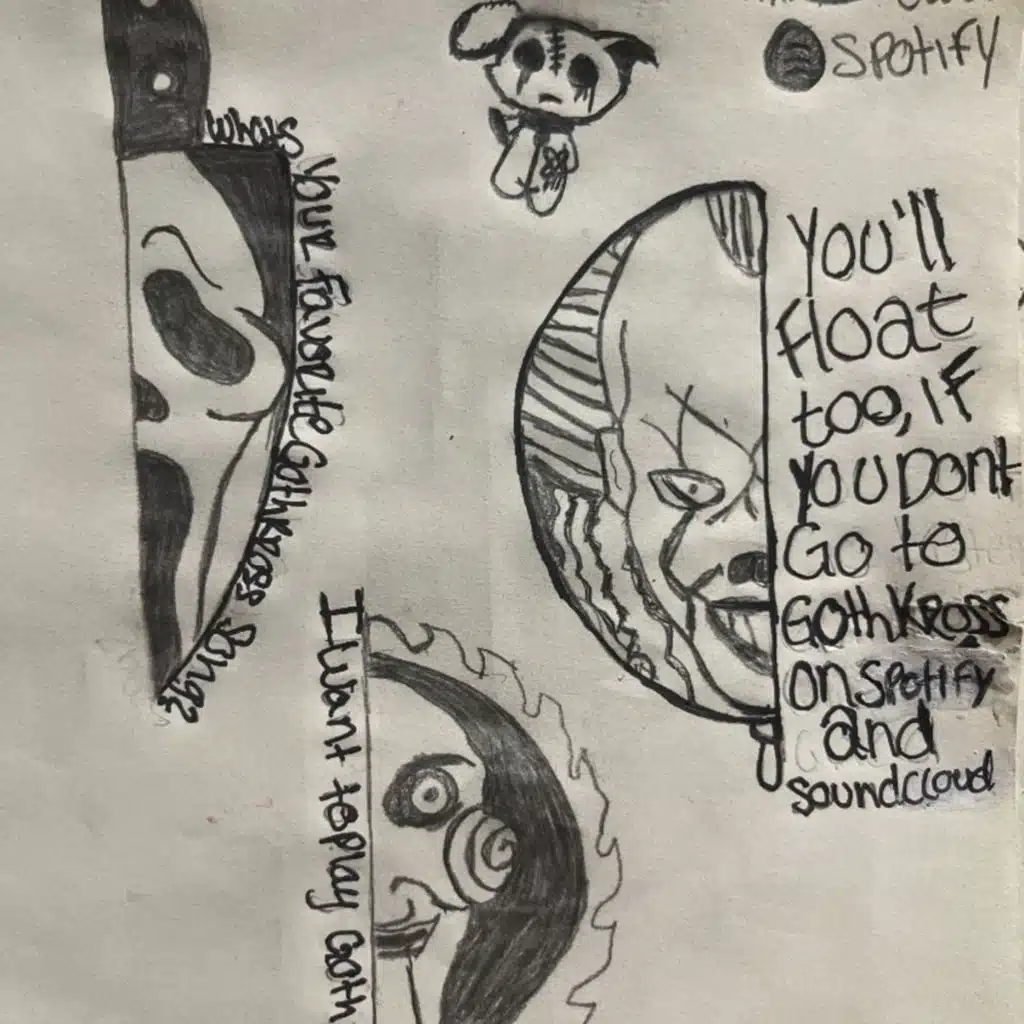 SPOTIFY
What's Your Favorite GothKross Song?
You'll
Float
too, IF
You Dont
Go to
GothKross
on Spotify
and
Soundcloud
I Want to Play Goth